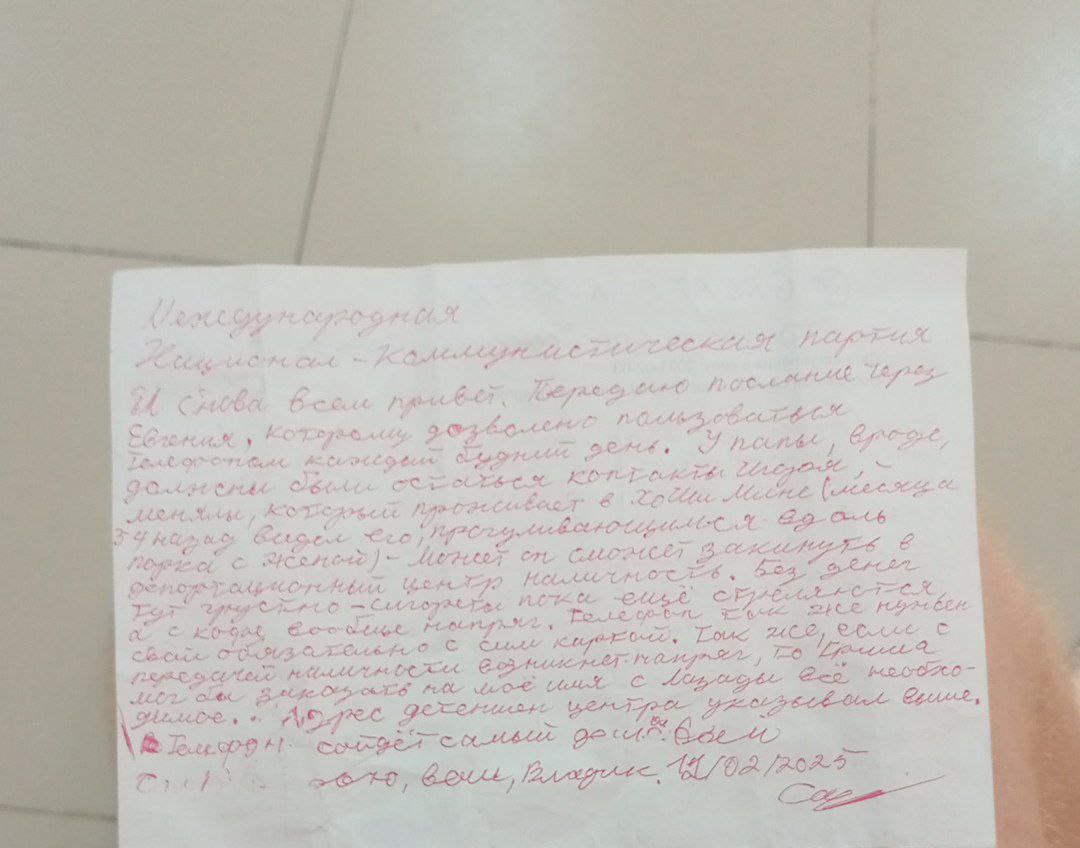 Международная
Национал-Коммунистическая партия
И снова всем привет. Передаю послание через
Евгения, которому дозволено пользоваться
телефоном каждый будний день. У папы, вроде,
должны были остаться контакты
менялы, который проживает в Хо Ши Мине (месяца
3-4 назад видел его, прогуливающимся вдоль
парка с женой) - может он сможет закинуть в
депортационный центр наличность. Без денег
тут грустно - сигареты пока ещё стреляются,
а с кофе вообще напряг. Телефон так же нужен
свой обязательно с сим картой. Так же, если с
передачей наличности возникнет напряг, то Гриша
мог бы заказать на моё имя с Лазады всё необхо-
димое.. Адрес детеншен центра указывал выше.
Телефон сойдёт самый
ваш, Владик. 12/02/2025